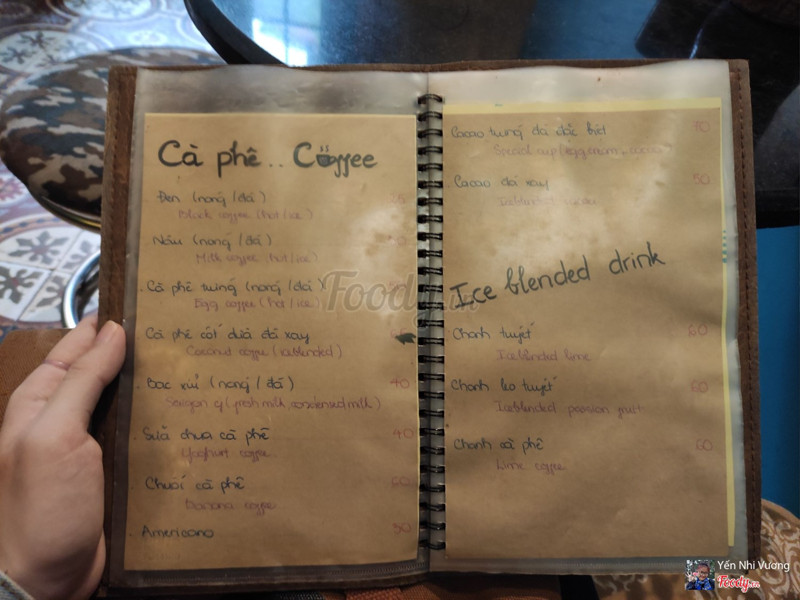 Cà phê .. Coffee
Đen (nóng / đá)
Black coffee (hot / ice)
Nâu (nóng / đá)
Milk coffee (hot / ice)
Cà phê trứng (nóng / đá)
Egg coffee (hot / ice)
Cà phê cốt dừa đá xay
Coconut coffee (iceblended)
Bạc xỉu (nóng / đá) 40
Saigon (fresh milk, condensed milk)
Sữa chua cà phê 40
Yoghurt coffee
Chuối cà phê 60
Banana coffee
Americano 50
Cacao trứng đá đặc biệt 70
Special cup (egg cream + cacao)
Cacao đá xay 50
Iceblended cacao
Ice blended drink
Chanh tuyết 60
Iceblended lime
Chanh leo tuyết 60
Iceblended passion fruit
Chanh cà phê 60
Lime coffee
Foody.vn
Yến Nhi Vương
Foody.vn